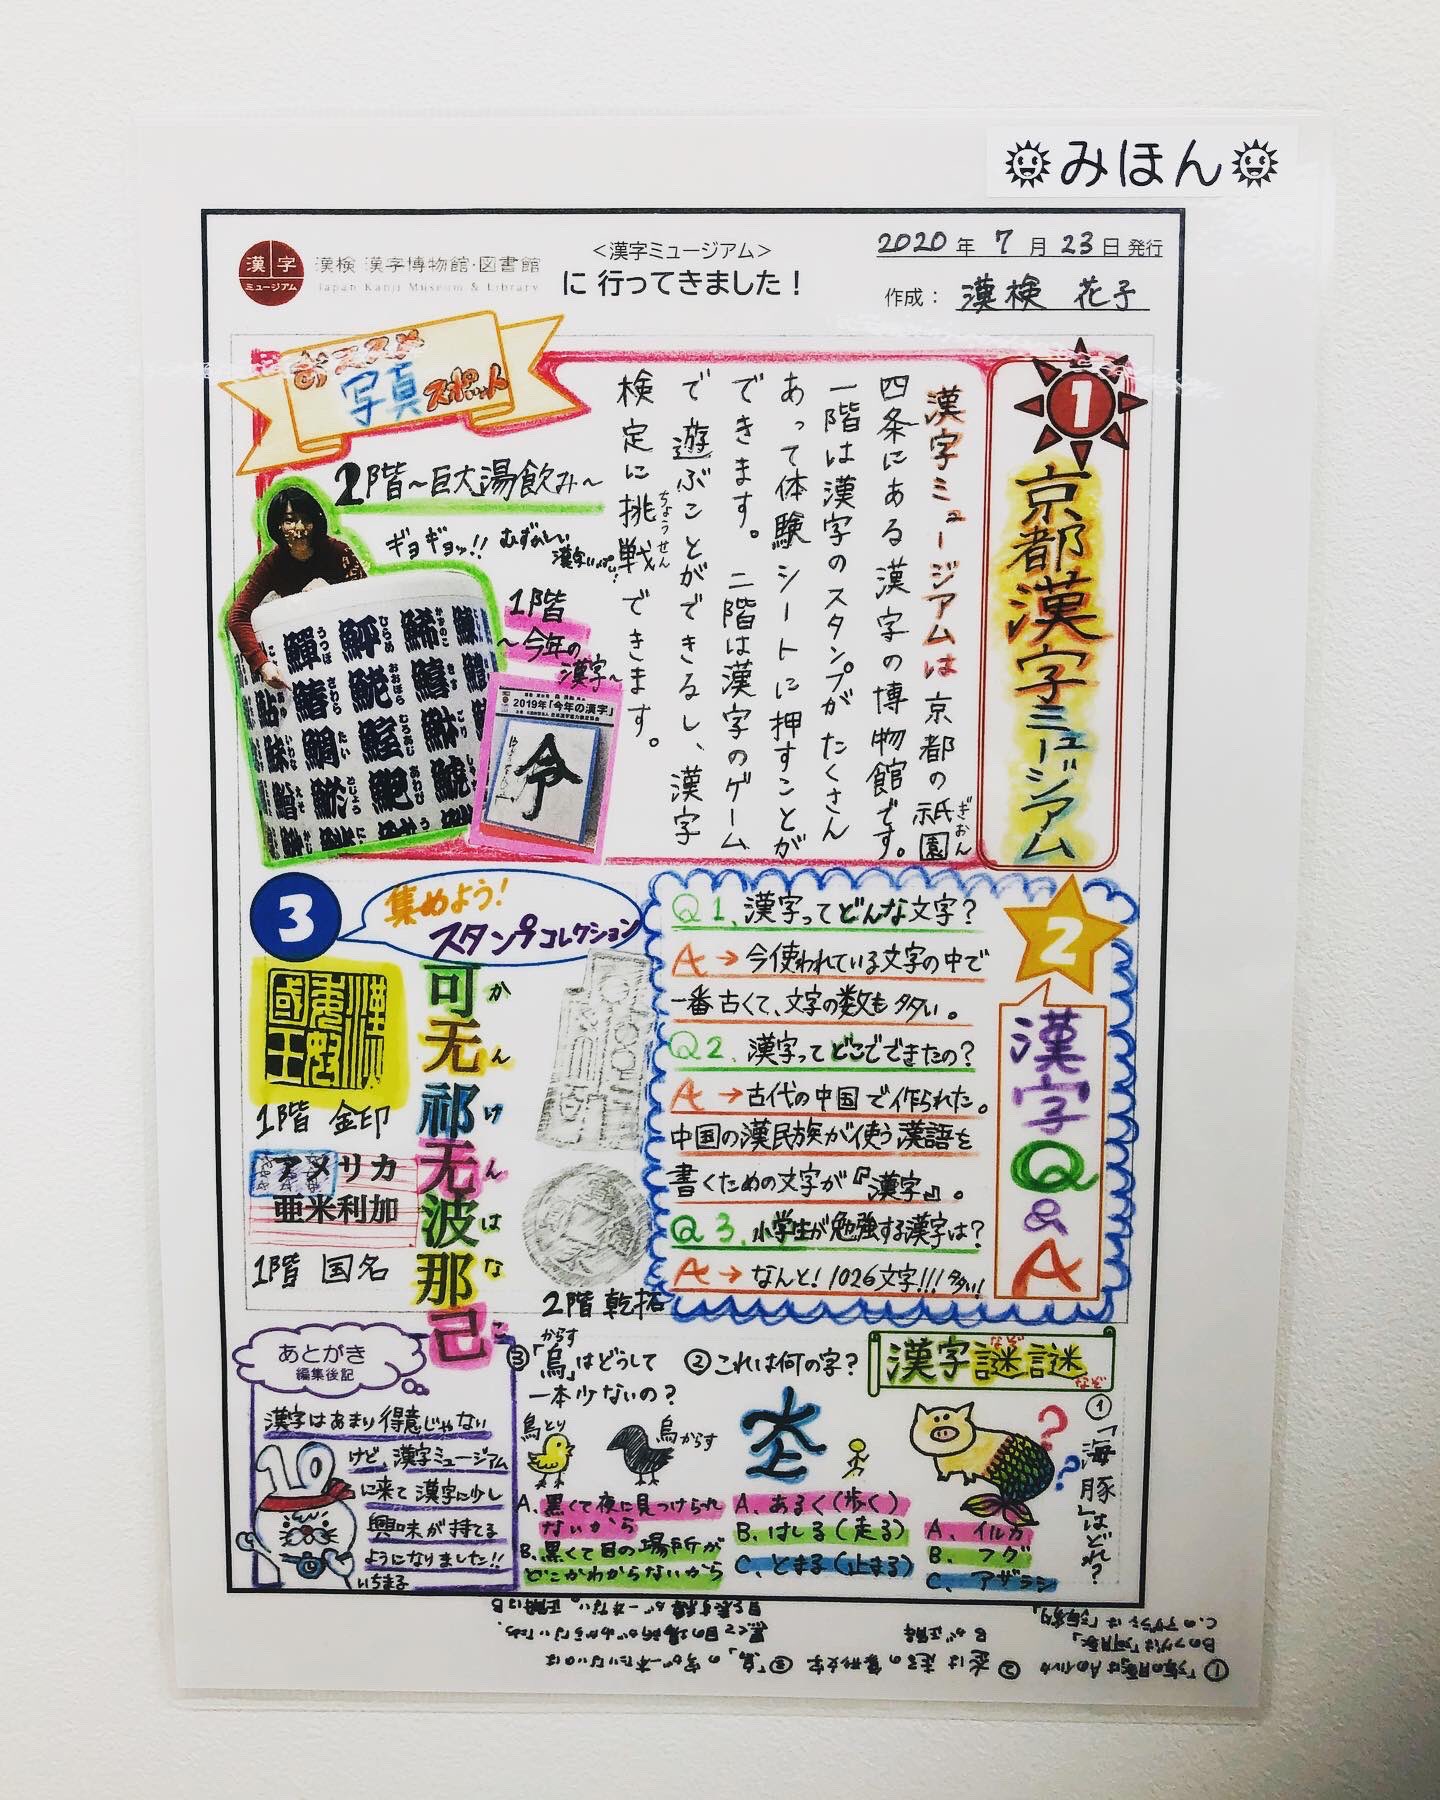 みほん
漢字
ミュージアム
漢検 漢字博物館・図書館
Japan Kanji Museum & Library
<漢字ミュージアム>
に 行ってきました!
2020年 7月 23日 発行
作成: 漢検 花子
1
京都漢字ミュージアム
漢字ミュージアムは京都の祇園
ぎおん
四条にある漢字の博物館です。
一階は漢字のスタンプがたくさん
あって体験シートに押すことが
できます。二階は漢字のゲーム
で遊ぶことができるし、漢字
検定に挑戦できます。
ちょうせん
おススメ
写真スポット
2階~巨大湯飲み~
ギョギョッ!! むずかしい
漢字いっぱい!
1階
~今年の
漢字~
2019年「今年の漢字」
令
2
漢字Q&A
Q1、漢字ってどんな文字?
A→今使われている文字の中で
一番古くて、文字の数も多い。
Q2、漢字ってどこでできたの?
A→古代の中国で作られた。
中国の漢民族が使う漢語を
書くための文字が『漢字』。
Q3、小学生が勉強する漢字は?
A→なんと!1026文字!!!多い!
3
集めよう!
スタンプコレクション
1階 金印
アメリカ
亜米利加
1階 国名
可无祁无波那己
かんけんはなこ
2階 乾拓
漢字謎謎
なぞ
なぞ
①「海豚」はどれ?
A、イルカ
B、フグ
C、アザラシ
②これは何の字?
A、あるく(歩く)
B、はしる(走る)
C、とまる(止まる)
からす
③「烏」はどうして
一本少ないの?
鳥とり
烏からす
A、黒くて夜に見つけられ
ないから
B、黒くて目の場所が
どこかわからないから
あとがき
編集後記
漢字はあまり得意じゃない
けど、漢字ミュージアム
に来て漢字に少し
興味が持てる
ようになりました!!
いちまる
10
①「海豚」はAのイルカ
Bのフグは「河豚」
Cのアザラシは「海豹」
Bが正解
③「烏」の字が一本たりないのは
黒くて目の場所がわからないため、